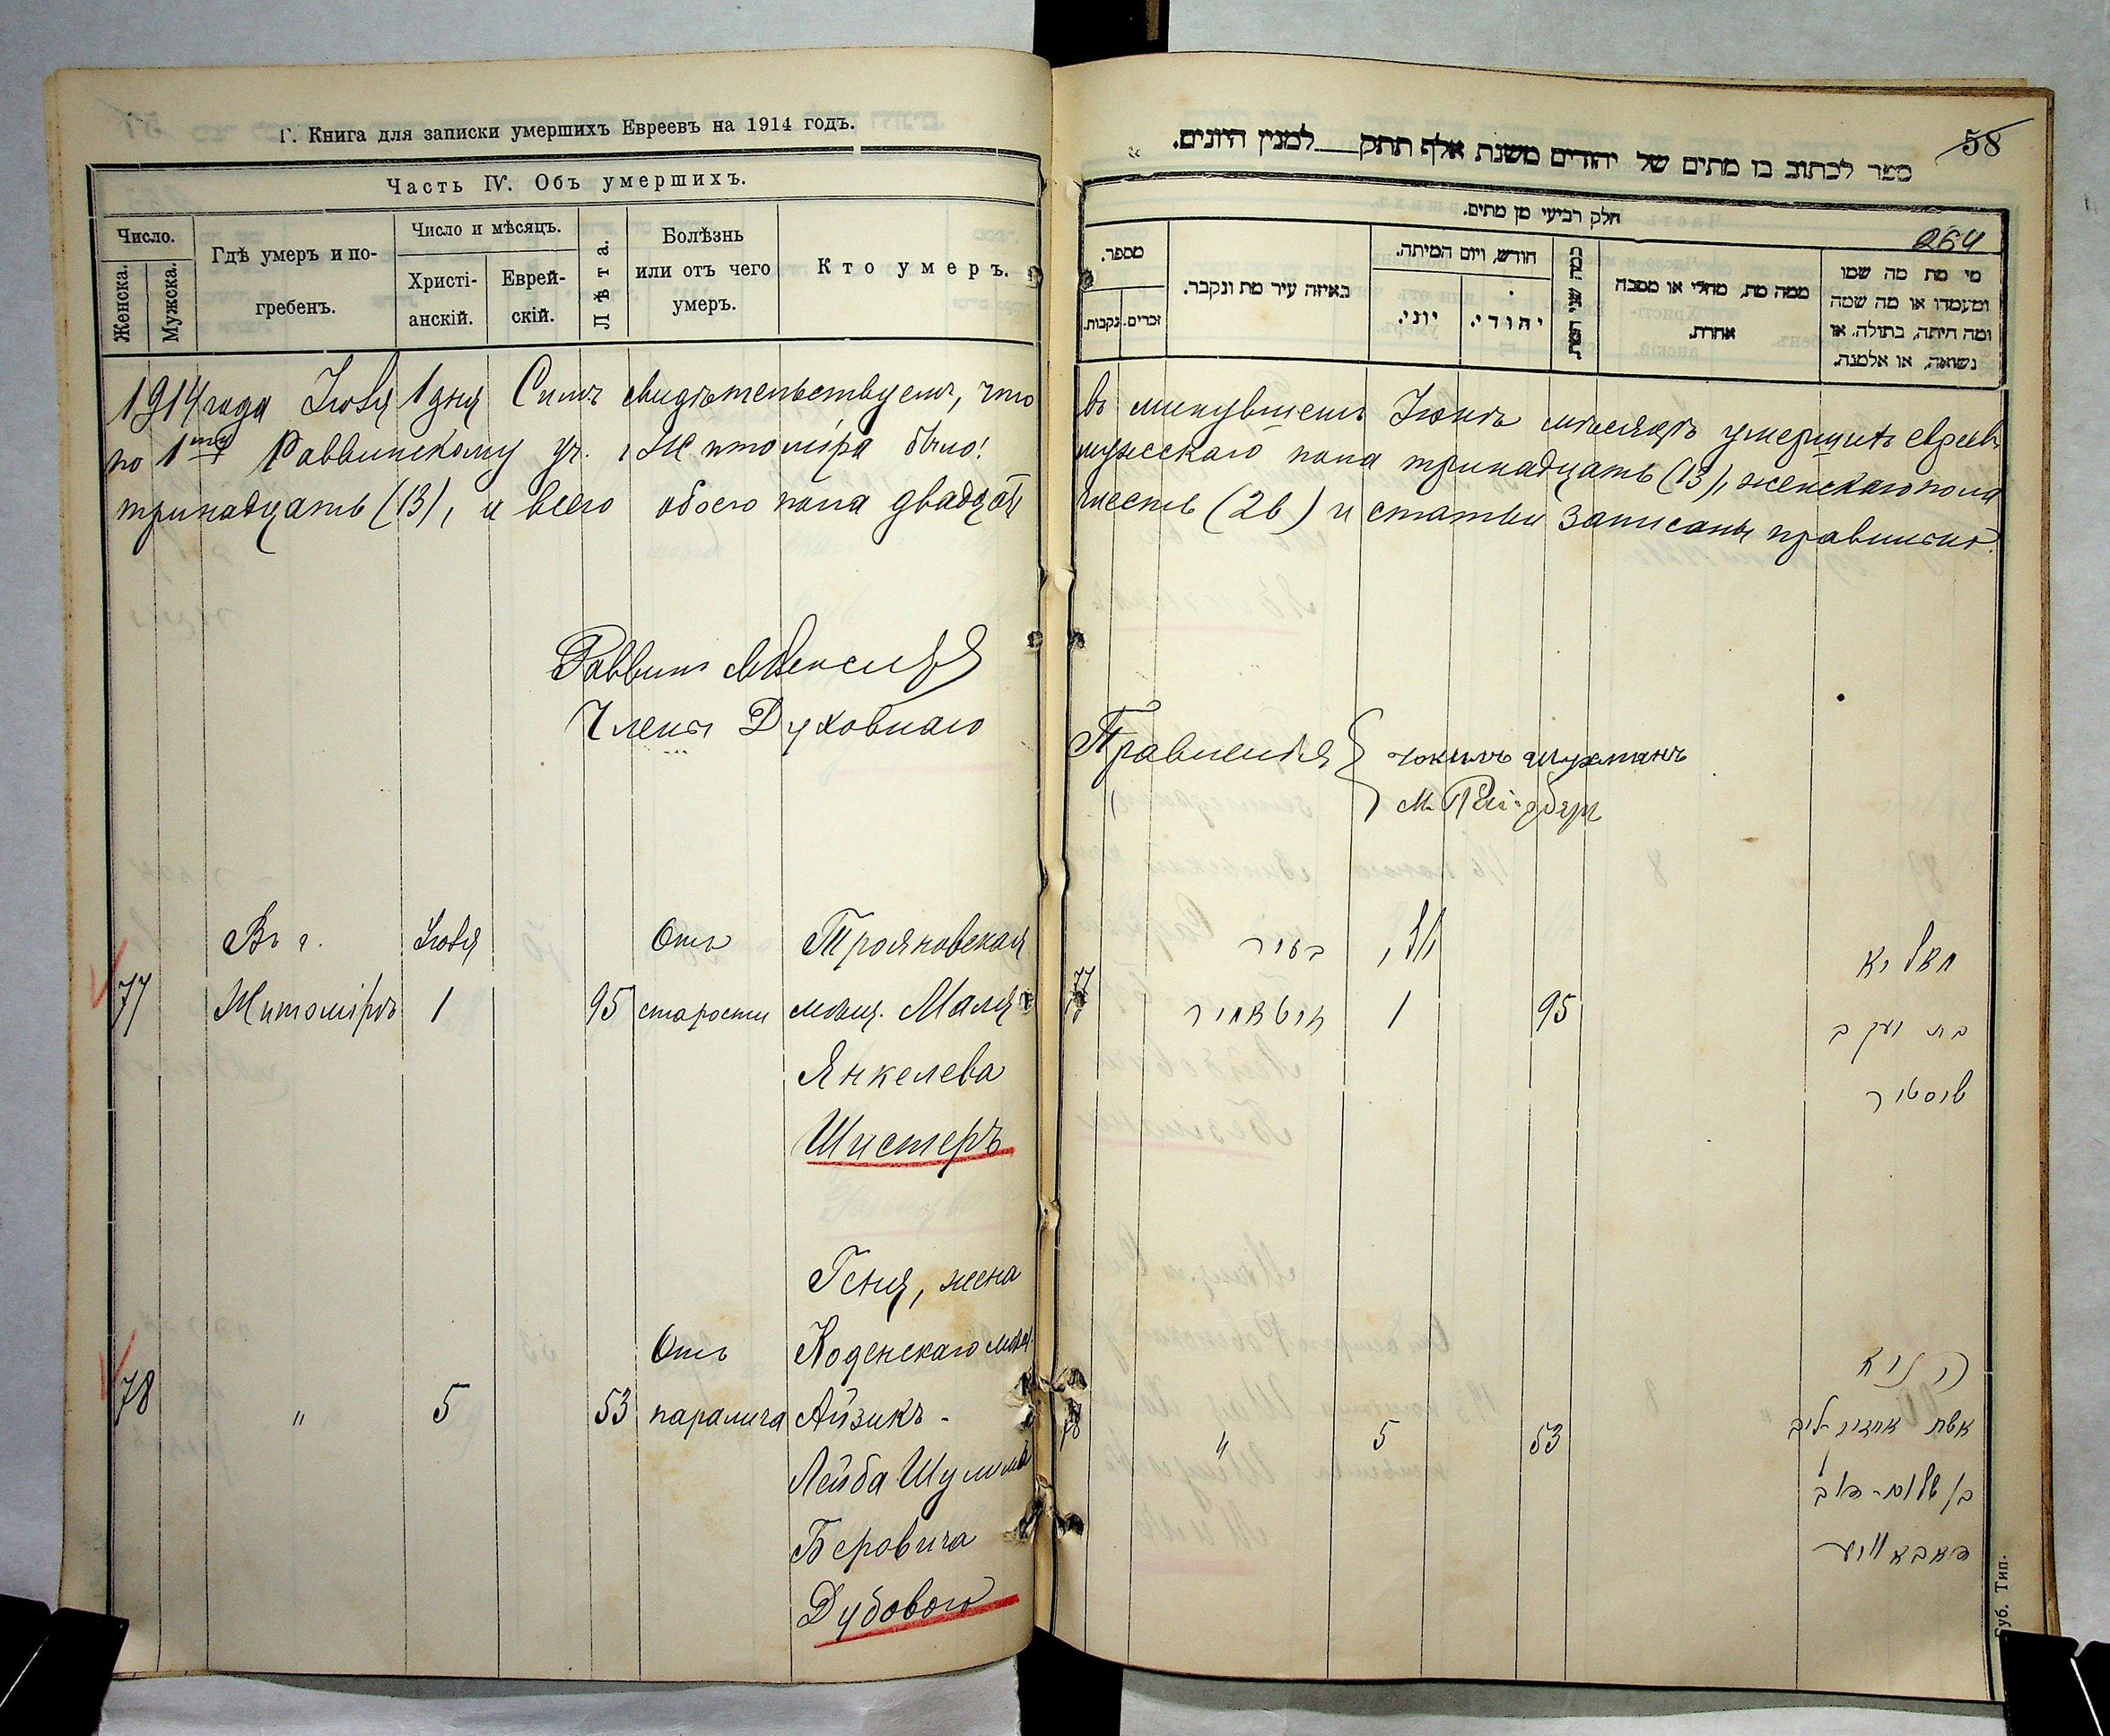 Г. Книга для записки умершихъ Евреевъ на 1914 годъ.
Часть IV. Объ умершихъ.
Число.
Женска.
Мужска.
Гдѣ умеръ и по-
гребенъ.
Число и мѣсяцъ.
Христі-
анскій.
Еврей-
скій.
Лѣта.
Болѣзнь
или отъ чего
умеръ.
Кто умеръ.
1914 года Іюля 1 дня Симъ свидѣтельствуемъ, что
по 1му Раввинскому уч. г. Житоміра было:
тринадцать (13), и всего обоего пола двадцать
Раввинъ
Члены Духовнаго
Въ г. Іюля Отъ Трояновская
77 Житомірѣ 1 95 старости мѣщ. Маля
Янкелева
Шистеръ
Геня, жена
Отъ Коденскаго мѣщ.
78 " 5 53 паралича Айзикъ-
Лейба Шулима
Беровича
Дубового
58
ספר לכתוב בו מתים של יהודים משנת אלף תתק למנין היונים.
חלק רביעי מן מתים.
264
מספר.
זכרים.
נקבות.
באיזה עיר מת ונקבר.
חודש, ויום המיתה.
יוני.
יהודי.
כמה שני המת.
ממה מת, מחלי או מסבה
אחרת.
מי מת מה שמו
ומעמדו או מה שמה
ומה היתה, בתולה, או
נשואה, או אלמנה.
въ минувшемъ Іюнѣ мѣсяцѣ умершихъ евреевъ
мужскаго пола тринадцать (13), женскаго пола
шесть (26) и статьи записаны правильно.
Правленія
Шухманъ
М.
בעיר יולי מאליא
77 זיטאמיר 1 95 בת יעקב
שוסטער
העניא
78 " 5 53 אשת אייזיק-ליב
בן שלום-בער
Губ. Тип.